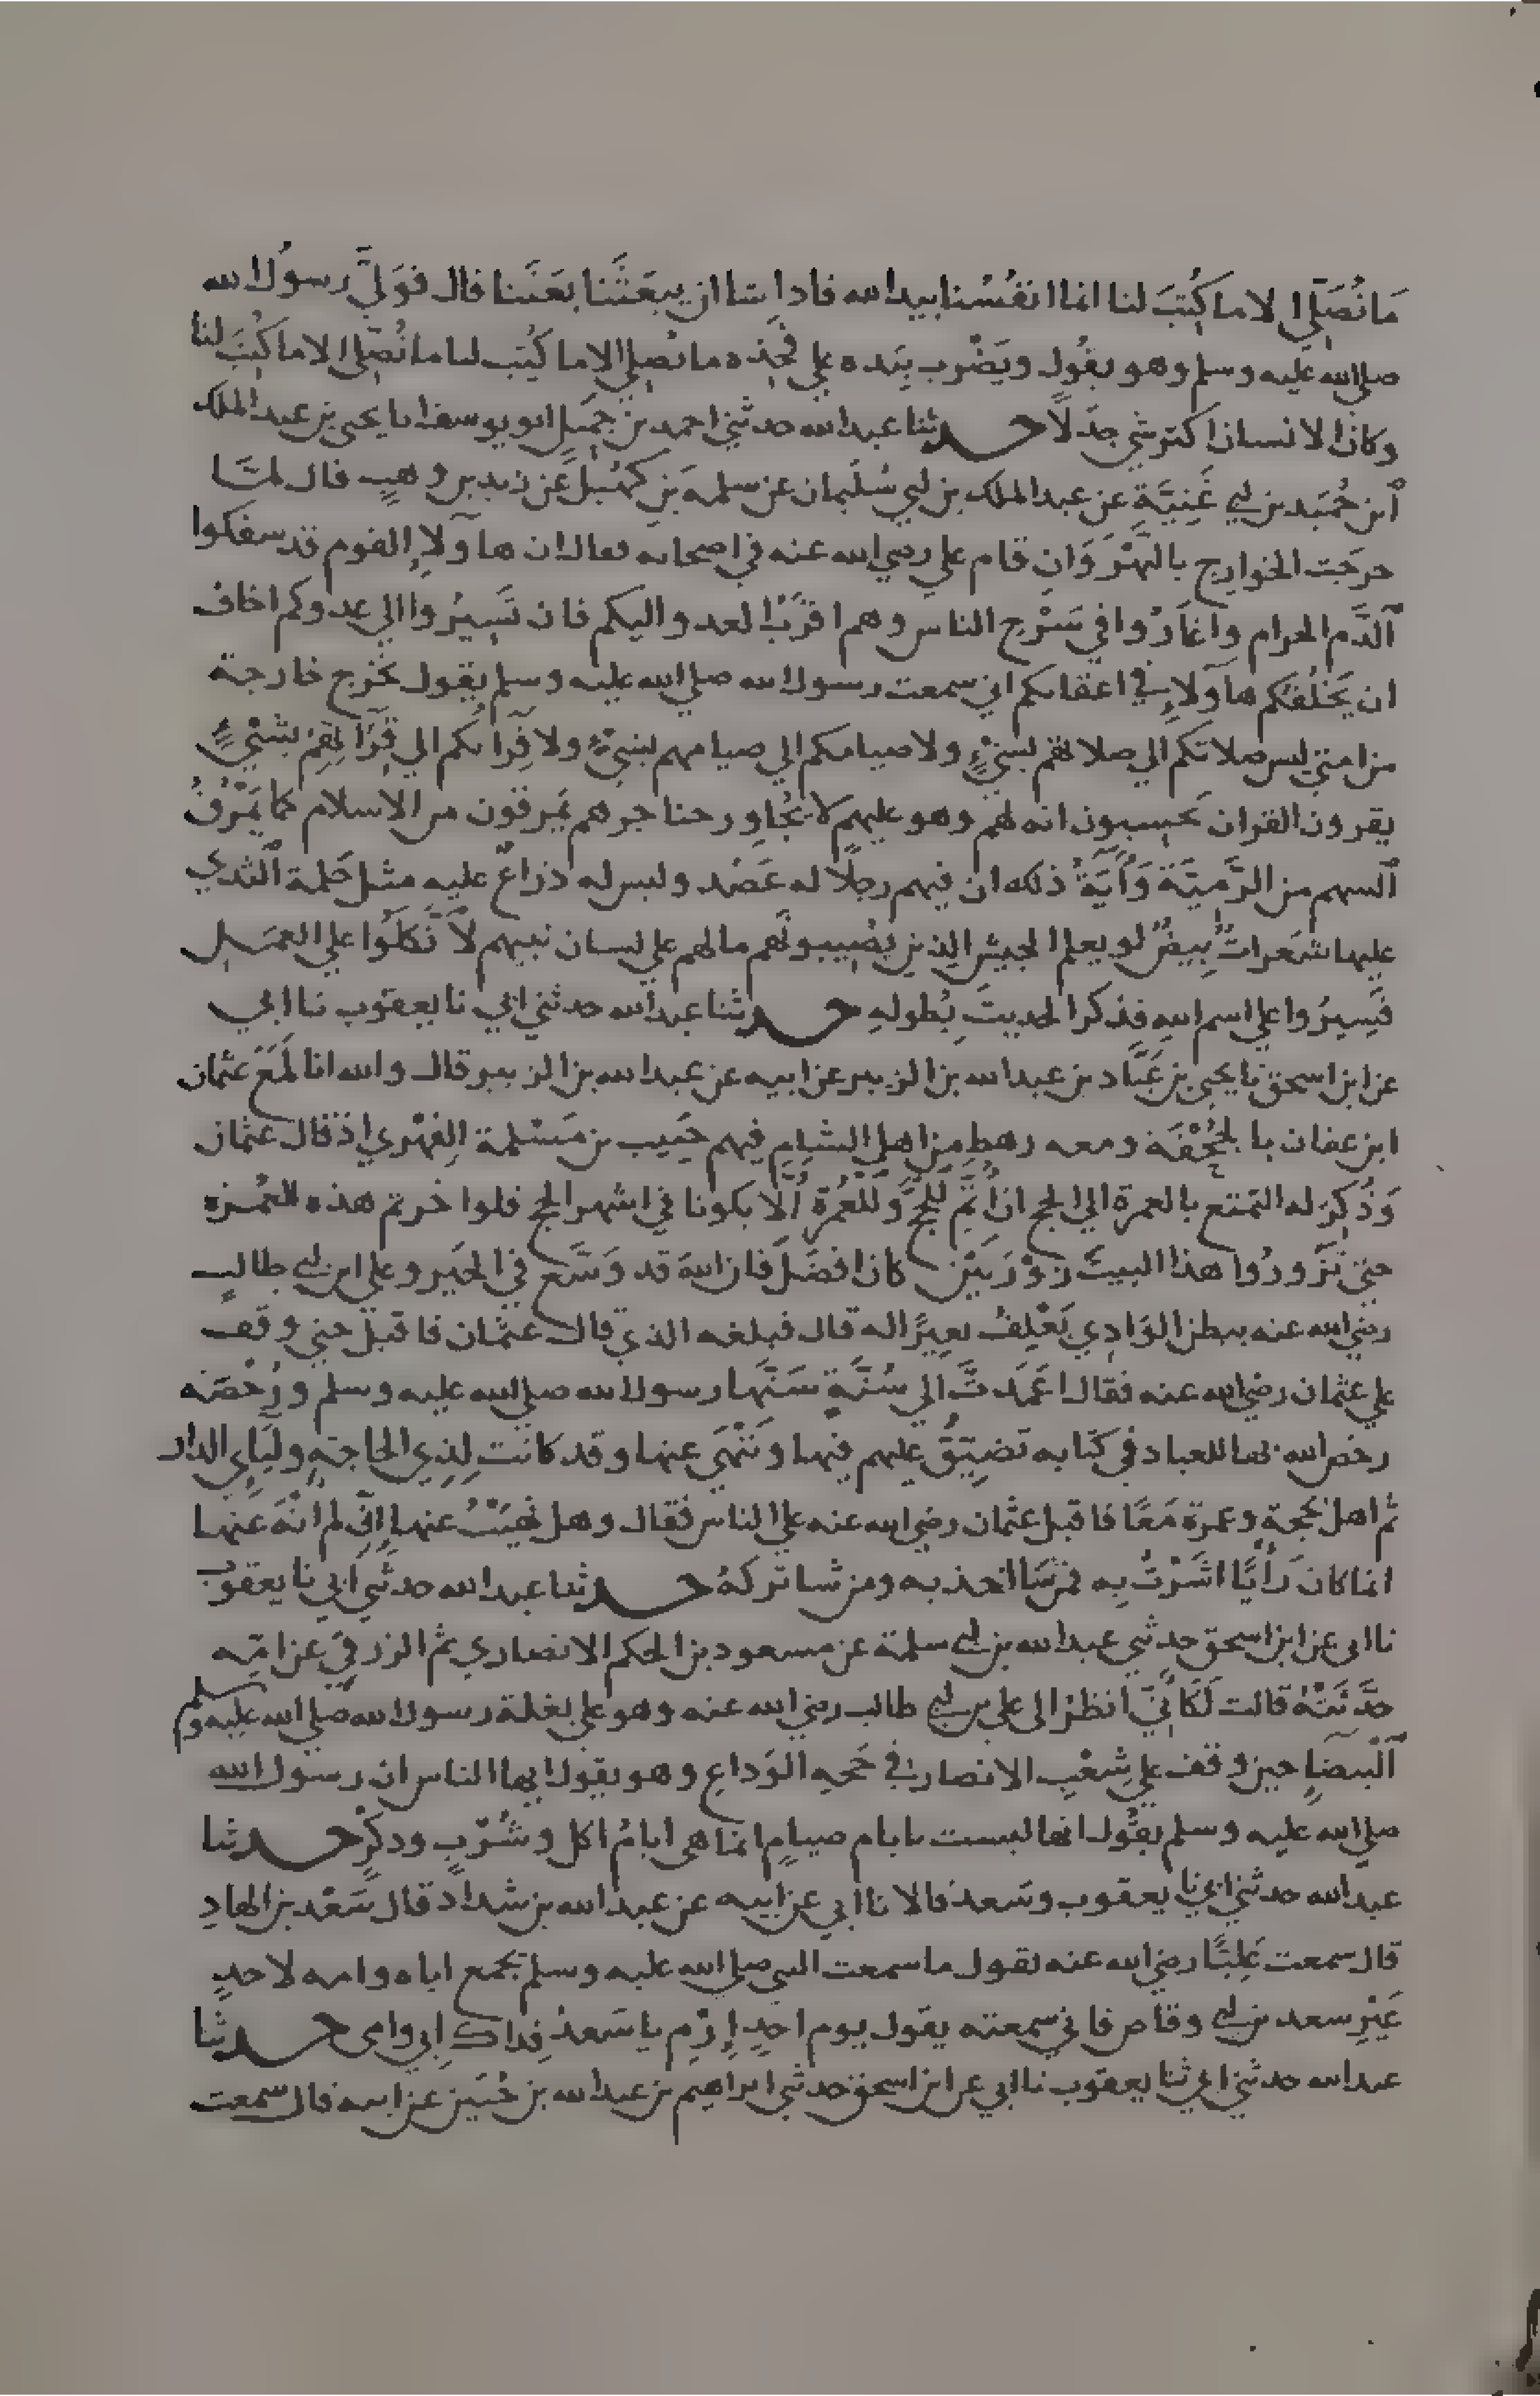 مَا نُصَلِّي الا ما كُتِبَ لنا انما انفُسُنا بيد الله فاذا شا ان يبعَثَنا بعَثَنا قال فوَلَّي رسولُ الله
صلى الله عليه وسلم وهو يقُول ويَضْرب بيَده علي فَخِذه ما نصلي الا ما كُتِب لنا ما نُصَلِّى الا ما كُتِبَ لنا
وكان الانسان اكثر شي جدَلًا حدثنا عبد الله حدثني احمد بن جَمِيل ابو يوسف انا يحيى بن عبد الملك
ٱبن حُمَيد بن ابي غَنِيَّة عن عبد الملك بن ابي سُلَيمان عن سلمه بن كُهَيْل عن زيد بن وهبٍ قال لمّا
خرجَت الخوارج بالنَّهْرَوَانِ قام علي رضي الله عنه في اصحابه فقال ان هاولآءِ القوم قد سفكوا
ٱلدَّم الحرام واغَارُوا في سَرْح الناس وهم اقرَبُ العدو اليكم فان تَسِيرُوا الي عدوكم اخاف
ان يَخْلُفكم هاولآءِ في اعقابكم اني سمعت رسول الله صلي الله عليه وسلم يقول تخْرُج خارجة
من امتي ليس صلاتكم الي صلاتهم بشيْءٍ ولا صيامكم الي صيامهم بشيْءٍ ولا قِرآتكم الي قِرَآتِهِم بشَيْءٍ
يقرون القران يَحسِبون انه لهم وهو عليهم لا يُجاوِر حناجرهم يَمرقون من الاسلام كما يَمْرُقُ
ٱلسهم من الرَّمِيَّة وَآيَةُ ذلك ان فيهم رجلًا له عَضُد وليس له ذراعٌ عليه مثل حَلمة الثدي
عليها شعَراتٌ بِيضٌ لو يعلم الجيش الذين يُصِيبونهم ما لهم علي لسان نبيهم لَاتَّكَلُوا علي العمَل
فَسِيرُوا علي اسم الله فذكر الحديثَ بِطُوله حدثنا عبد الله حدثني ابي نا يعقوب نا ابي
عن ابن اسحق نا يحيى بن عَبَّاد بن عبد الله بن الزبير عن ابيه عن عبد الله بن الزبير قال والله انا لمَعَ عثمان
ابن عفان بالجُحْفَة ومعه رهط مِن اهل الشام فِيهم حَبِيب بن مَسْلمة الفِهْري اذ قال عثمان
وَذُكِرَ له التمتع بالعمرة الي الحج ان اَتَمَّ للحجِّ وَللعُمْرة اَلَّا يكونا في اشهر الحج فلوا خرتم هذه العُمرة
حتي تَزورُوا هذا البيتَ زَوْرَتَيْن كان افضَلَ فان الله قد وَسَّع في الخَير وعلي ابن ابي طالبٍ
رضي الله عنه ببطن الوَادِي يَعْلِفُ بعِيرًا له قال فبلغه الذي قال عثمان فاقبل حتي وقف
علي عثمان رضي الله عنه فقال اعَمَدتَّ الي سُنَّةٍ سَنَّها رسول الله صلي الله عليه وسلم ورُخْصَه
رخص الله بها للعباد في كتابه تضيِّقُ عليهم فيها وتَنْهَي عنها وقد كانت لِذِي الحاجةِ ولنَاءِي الدار
ثم اهل بحجةٍ وعمرة مَعًا فاقبل عثمان رضي الله عنه علي الناس فقال وهل نهَيْتُ عنها اِنِّي لم انْهَ عنها
انما كان رَأْيًا اشَرْتُ بِه فمن شَا اخذ به ومن شا تركهُ حدثنا عبد الله حدثني ابي نا يعقوب
نا ابى عن ابن اسحق حدثني عبد الله بن ابي سلمة عن مسعود بن الحكم الانصاري ثم الزرقيّ عن امّه
حدَّثَتْهُ قالت لَكَانِّيّ انظرُ الى علي بن ابي طالب رضي الله عنه وهو علي بغلة رسول الله صلي الله عليه وسلم
ٱلْبيضآءِ حين وقف علي شِعْبِ الانصار في حَجه الوَداع وهو يقول ايها الناس ان رسول الله
صلي الله عليه وسلم يقُول انها ليست بايام صيامٍ انما هي ايامُ اكل وشُرْبٍ وذكرٍ حدثنا
عبد الله حدثني ابي نا يعقوب وسَعد قالا نا ابي عن ابيه عن عبد الله بن شداد قال سَعْد بن الهادِ
قال سمعت عَلِيًّا رضي الله عنه يقول ما سمعت النبي صلي الله عليه وسلم يجمع اباه وامه لاحدٍ
غيْرِ سعد بن ابي وقاص فاني سمعته يقول يوم احدٍ اِرْمِ يا سَعدُ فِداك ابي وامى حدثنا
عبد الله حدثني ابي ثنا يعقوب نا ابي عن ابن اسحق حدثني ابراهيم بن عبد الله بن حُنَين عن ابيه قال سمعت